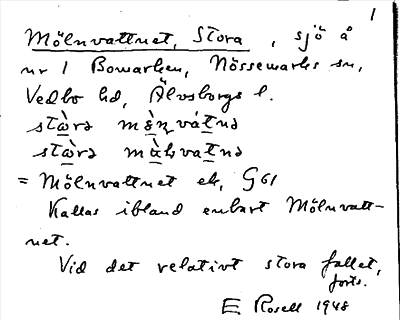 1
Mölnvattnet, Stora, sjö å
nr 1 Bowarken, Nössemarks sn,
Vedbo hd, Älvsborgs l.
= Mölnvattnet ek, G61
Kallas ibland enbart Mölnvatt-
net.
Vid det relativt stora fallet,
forts.
E Rosell 1948